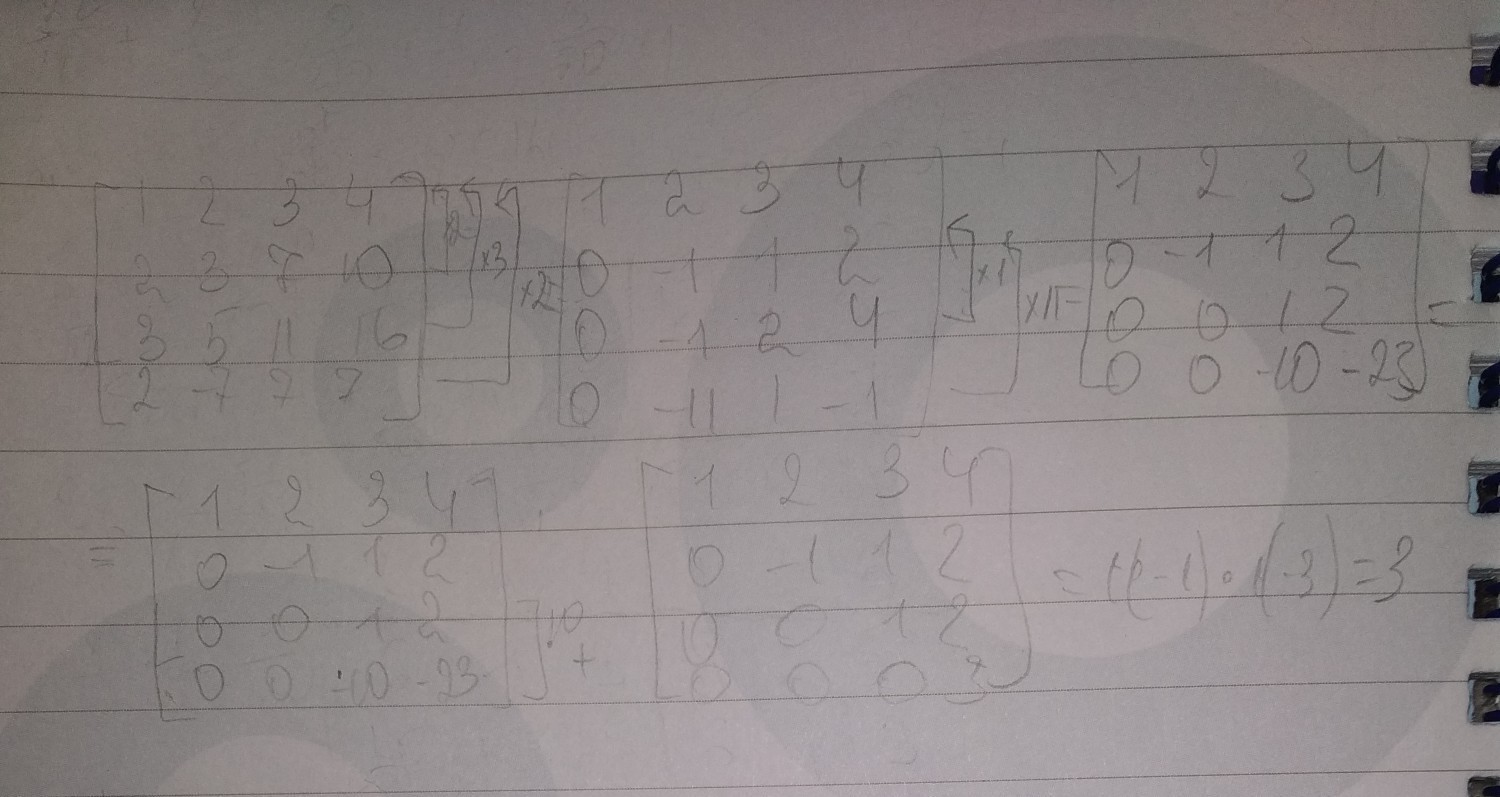 [1 2 3 4] ×2 ×3 ×2 = [1 2 3 4] ×1 ×11 = [1 2 3 4]
[2 3 7 10] [0 -1 1 2] [0 -1 1 2]
[3 5 11 16] [0 -1 2 4] [0 0 1 2] =
[2 -7 7 7] [0 -11 1 -1] [0 0 -10 -23]
[1 2 3 4] [1 2 3 4]
= [0 -1 1 2] [0 -1 1 2] = 1(-1)·1(-3)=3
[0 0 1 2] ·10 [0 0 1 2]
[0 0 -10 -23] + [0 0 0 3]